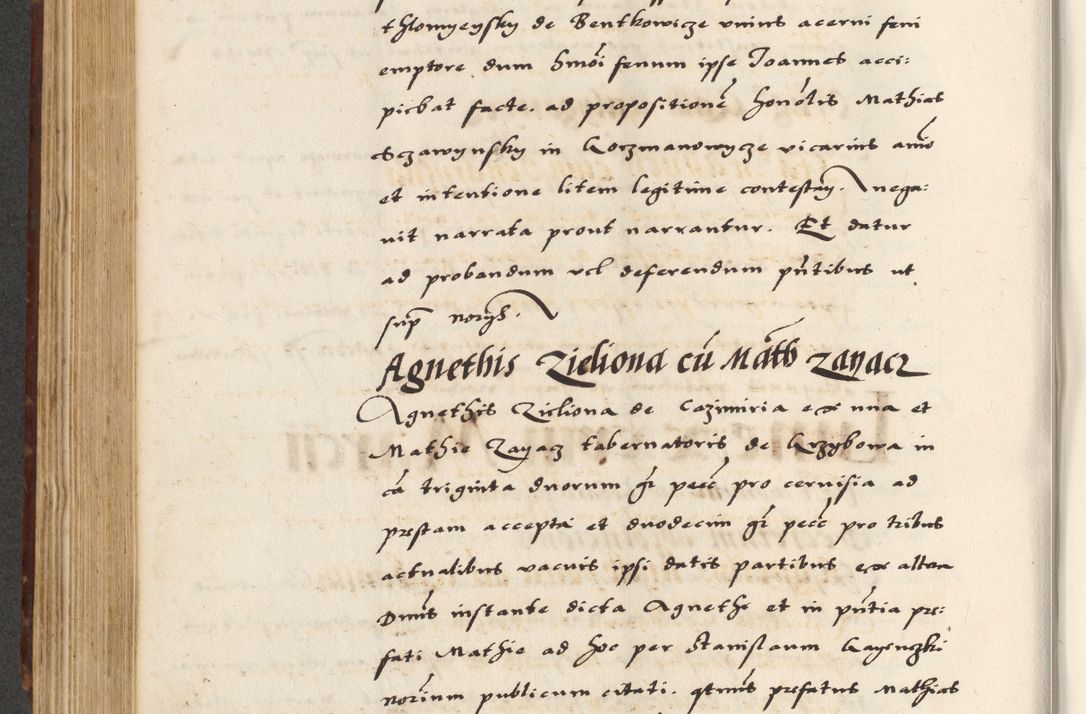 thlomyeysky de Bentkowicze unius acerni feni
emptore dum hmõi fenum ipse Joannes acci:
piebat facte. ad propositionẽ honõlis Mathias
Sczawynsky in Korzmanowycze vicarius aīo
et intentione litem legitime contestan̄. nega:
vit narrata prout narrantur. Et datur
ad probandum vel deferendum pñtibus ut
sup̄ norijs.
Agnethis Zieliona cũ Math Zayacz
Agnethis Zieliona de Cazimiria ex una et
Mathie Zayacz tabernatoris de Grzybowa in
cã triginta duorum gř pecč pro cervisia ad
prestam accepta et duodecim gř pecč pro tribus
actualibus vacuis ipsi datis partibus ex altera
Dnũs instante dicta Agnethe et in pñtia pre:
fati Mathie ad hoc per Stanislaum Gayenczki
norium publicum citati. qtenus prefatus Mathias